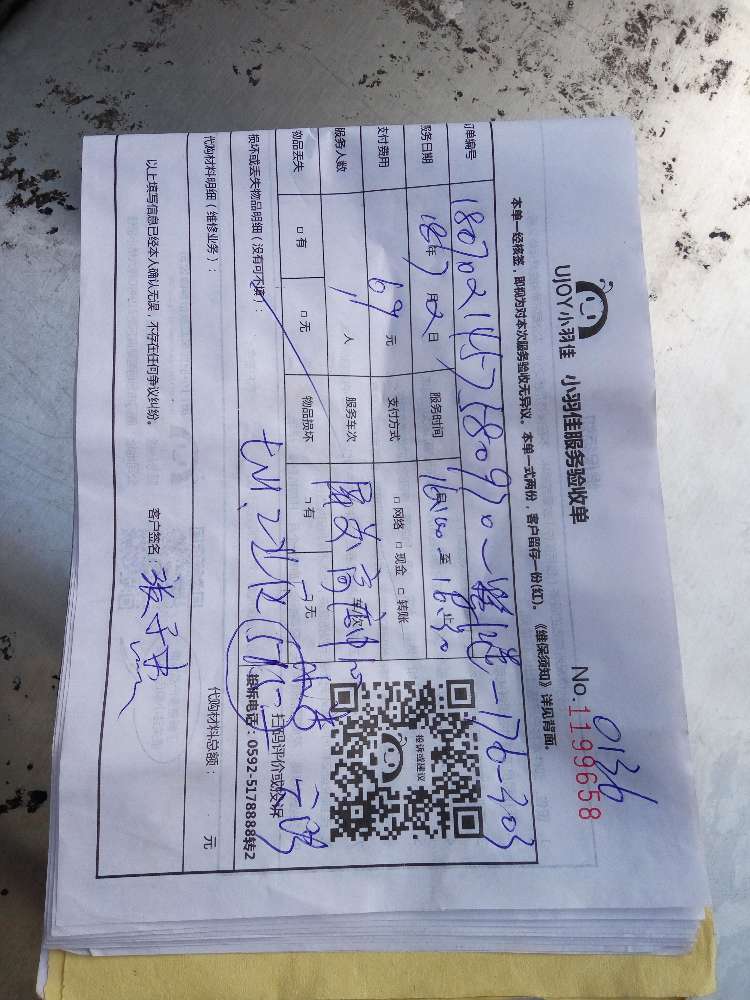 UJOY小羽佳 小羽佳服务验收单
No.1199658
0136
本单一经核签，即视为对本次服务验收无异议。本单一式两份，客户留存一份(红)。《维保须知》详见背面。
订单编号 180702145758090
服务日期 18年7月2日 服务时间 16:00至16:30
支付费用 69元 支付方式 □网络 □现金 □转账
服务人数 1人 服务车次 车次
物品丢失 □有 □无 物品损坏 □有 □无
投诉或建议
扫码评价或投诉
投诉电话：0592-5178888转2
损坏或丢失物品明细（没有可不填）：
代购材料明细（维修业务）： 代购材料总额： 元
以上填写信息已经本人确认无误，不存在任何争议纠纷。 客户签名：